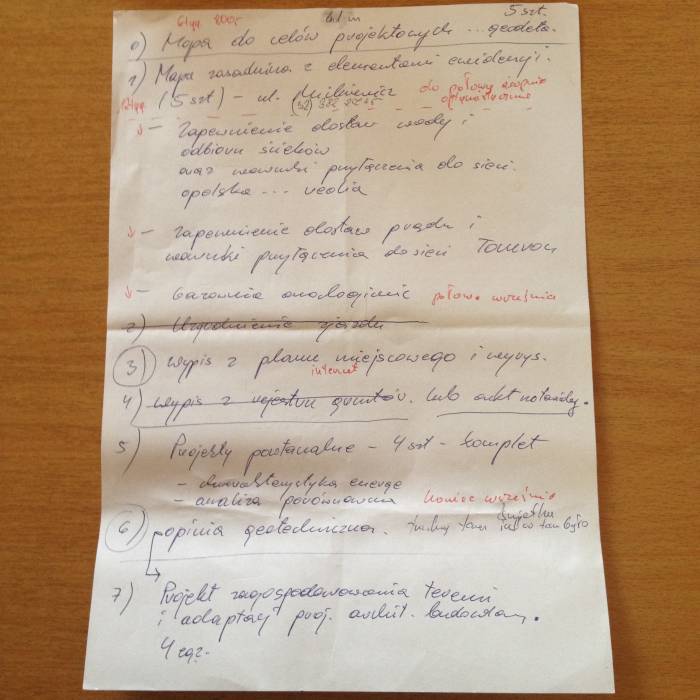 5 szt.
0) Mapa do celów projektowych ... geodeta.
1) Mapa zasadnicza z elementami ewidencji.
(5 szt) - ul. Mickiewicz do połowy sierpnia
optymistycznie
- Zapewnienie dostaw wody i
odbioru ścieków
oraz warunki przyłączenia do sieci.
opolska ... veolia
- zapewnienie dostaw prądu i
warunki przyłączenia do sieci Tauron
- Gazownia analogicznie połowa września
2) Uzgodnienie zjazdu
3) wypis z planu miejscowego i wyrys.
internet
4) wypis z rejestru gruntów. lub akt notarialny.
5) Projekty powtarzalne - 4 szt - komplet
- charakterystyka energe
- analiza porównawcza koniec września
6) opinia geotechniczna.
7) Projekt zagospodarowania terenu
i adaptacji proj. archit. budowlany.
4 egz.